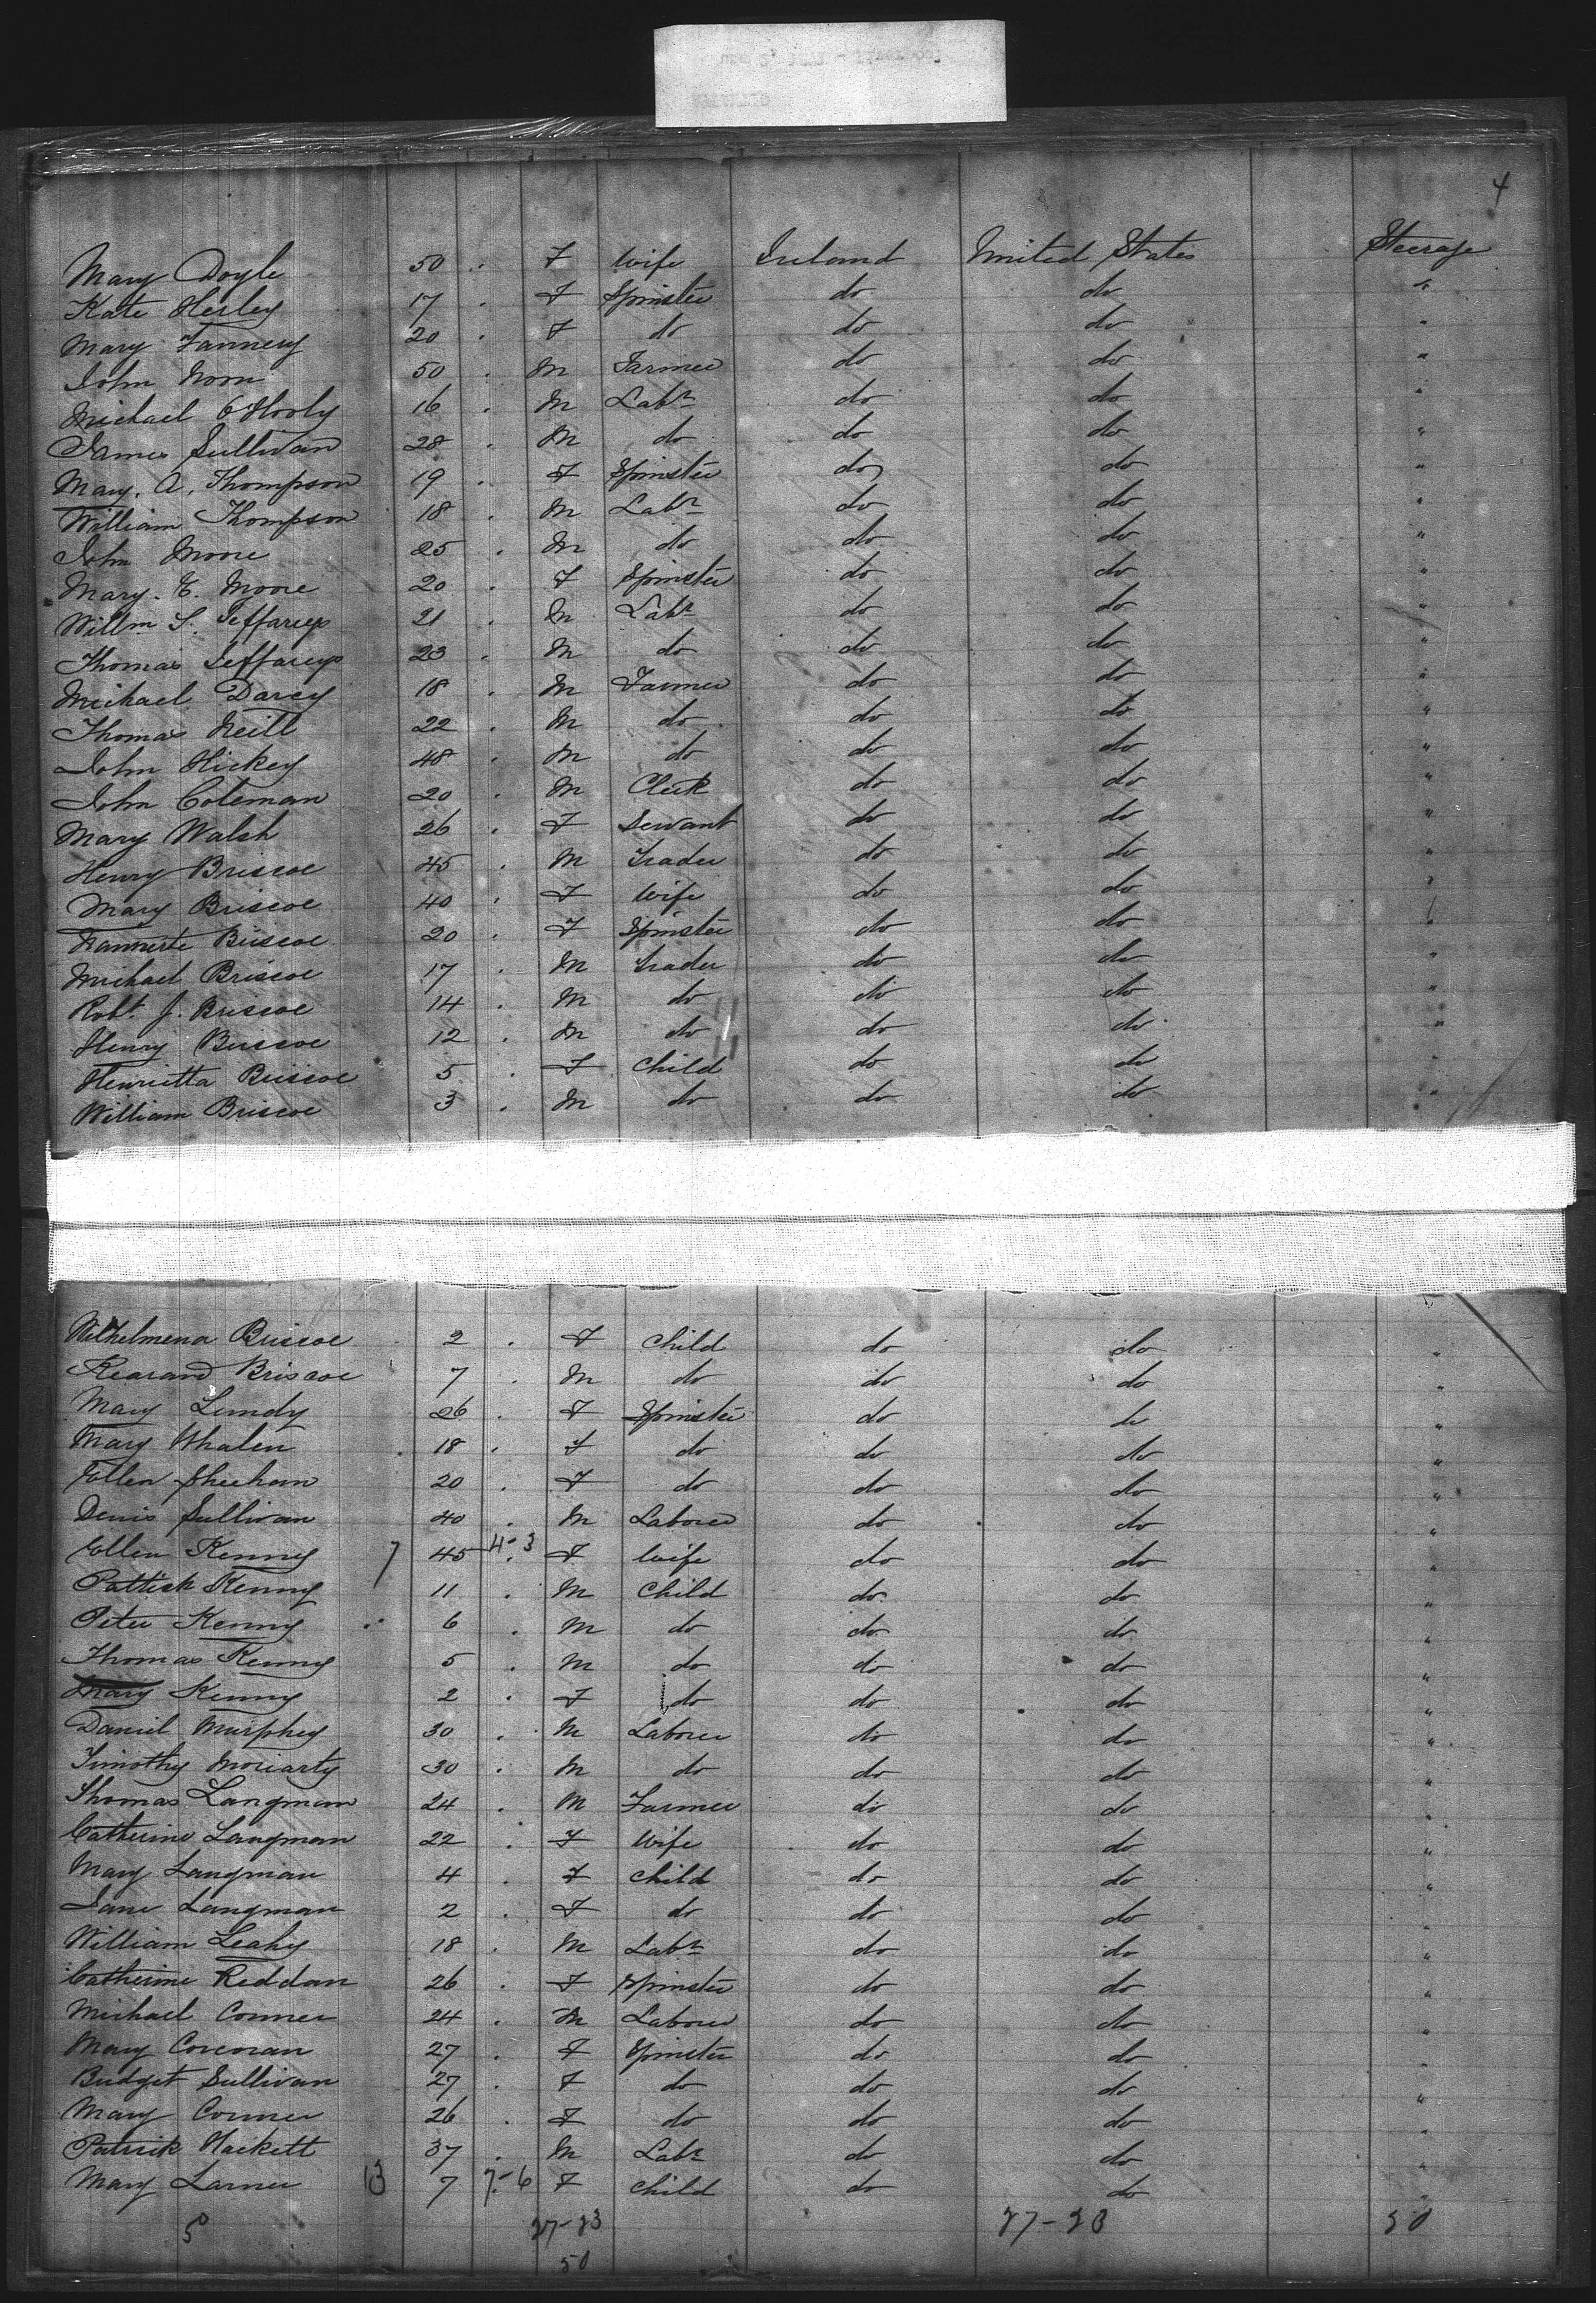 4
Mary Doyle 50 . F Wife Ireland United States Steerage
Kate Herley 17 . F Spinster do do "
Mary Fannery 20 . F do do do "
John 50 . M Farmer do do "
Michael O'Hooly 16 . M Labr do do "
James Sullivan 28 . M do do do "
Mary. A. Thompson 19 . F Spinster do do "
William Thompson 18 . M Labr do do "
John Moore 25 . M do do do "
Mary. E. Moore 20 . F Spinster do do "
Willm S. Jeffareys 21 . M Labr do do "
Thomas Jeffareys 23 . M do do do "
Michael Darcy 18 . M Farmer do do "
Thomas Neill 22 . M do do do "
John Hickey 48 . M do do do "
John Coleman 20 . M Clerk do do "
Mary Walsh 26 . F Servant do do "
Henry Briscoe 45 . M Trader do do "
Mary Briscoe 40 . F Wife do do "
Briscoe 20 . F Spinster do do "
Michael Briscoe 17 . M Trader do do "
Robt. J. Briscoe 14 . M do do do "
Henry Briscoe 12 . M do do do "
Henrietta Briscoe 5 . F Child do do "
William Briscoe 3 . M do do do "
Wilhelmena Briscoe 2 . F Child do do "
Briscoe 7 . M do do do "
Mary Lundy 26 . F Spinster do do "
Mary Whalen 18 . F do do do "
Ellen Sheehan 20 . F do do do "
Denis Sullivan 40 . M Laborer do do "
Ellen Kenny 7 45 4-3 F Wife do do "
Patrick Kenny 11 . M Child do do "
Peter Kenny 6 . M do do do "
Thomas Kenny 5 . M do do do "
Mary Kenny 2 . F do do do "
Daniel Murphey 30 . M Laborer do do "
Timothy Moriarty 30 . M do do do "
Thomas Langman 24 . M Farmer do do "
Catherine Langman 22 . F Wife do do "
Mary Langman 4 . F Child do do "
Jane Langman 2 . F do do do "
William Leahy 18 . M Labr do do "
Catherine Reddan 26 . F Spinster do do "
Michael Conner 24 . M Laborer do do "
Mary Corcoran 27 . F Spinster do do "
Bridget Sullivan 27 . F do do do "
Mary Conner 26 . F do do do "
Patrick Hackett 37 . M Labr do do "
Mary Larner 13 7 7-6 F Child do do "
27-23 27-23 50
50